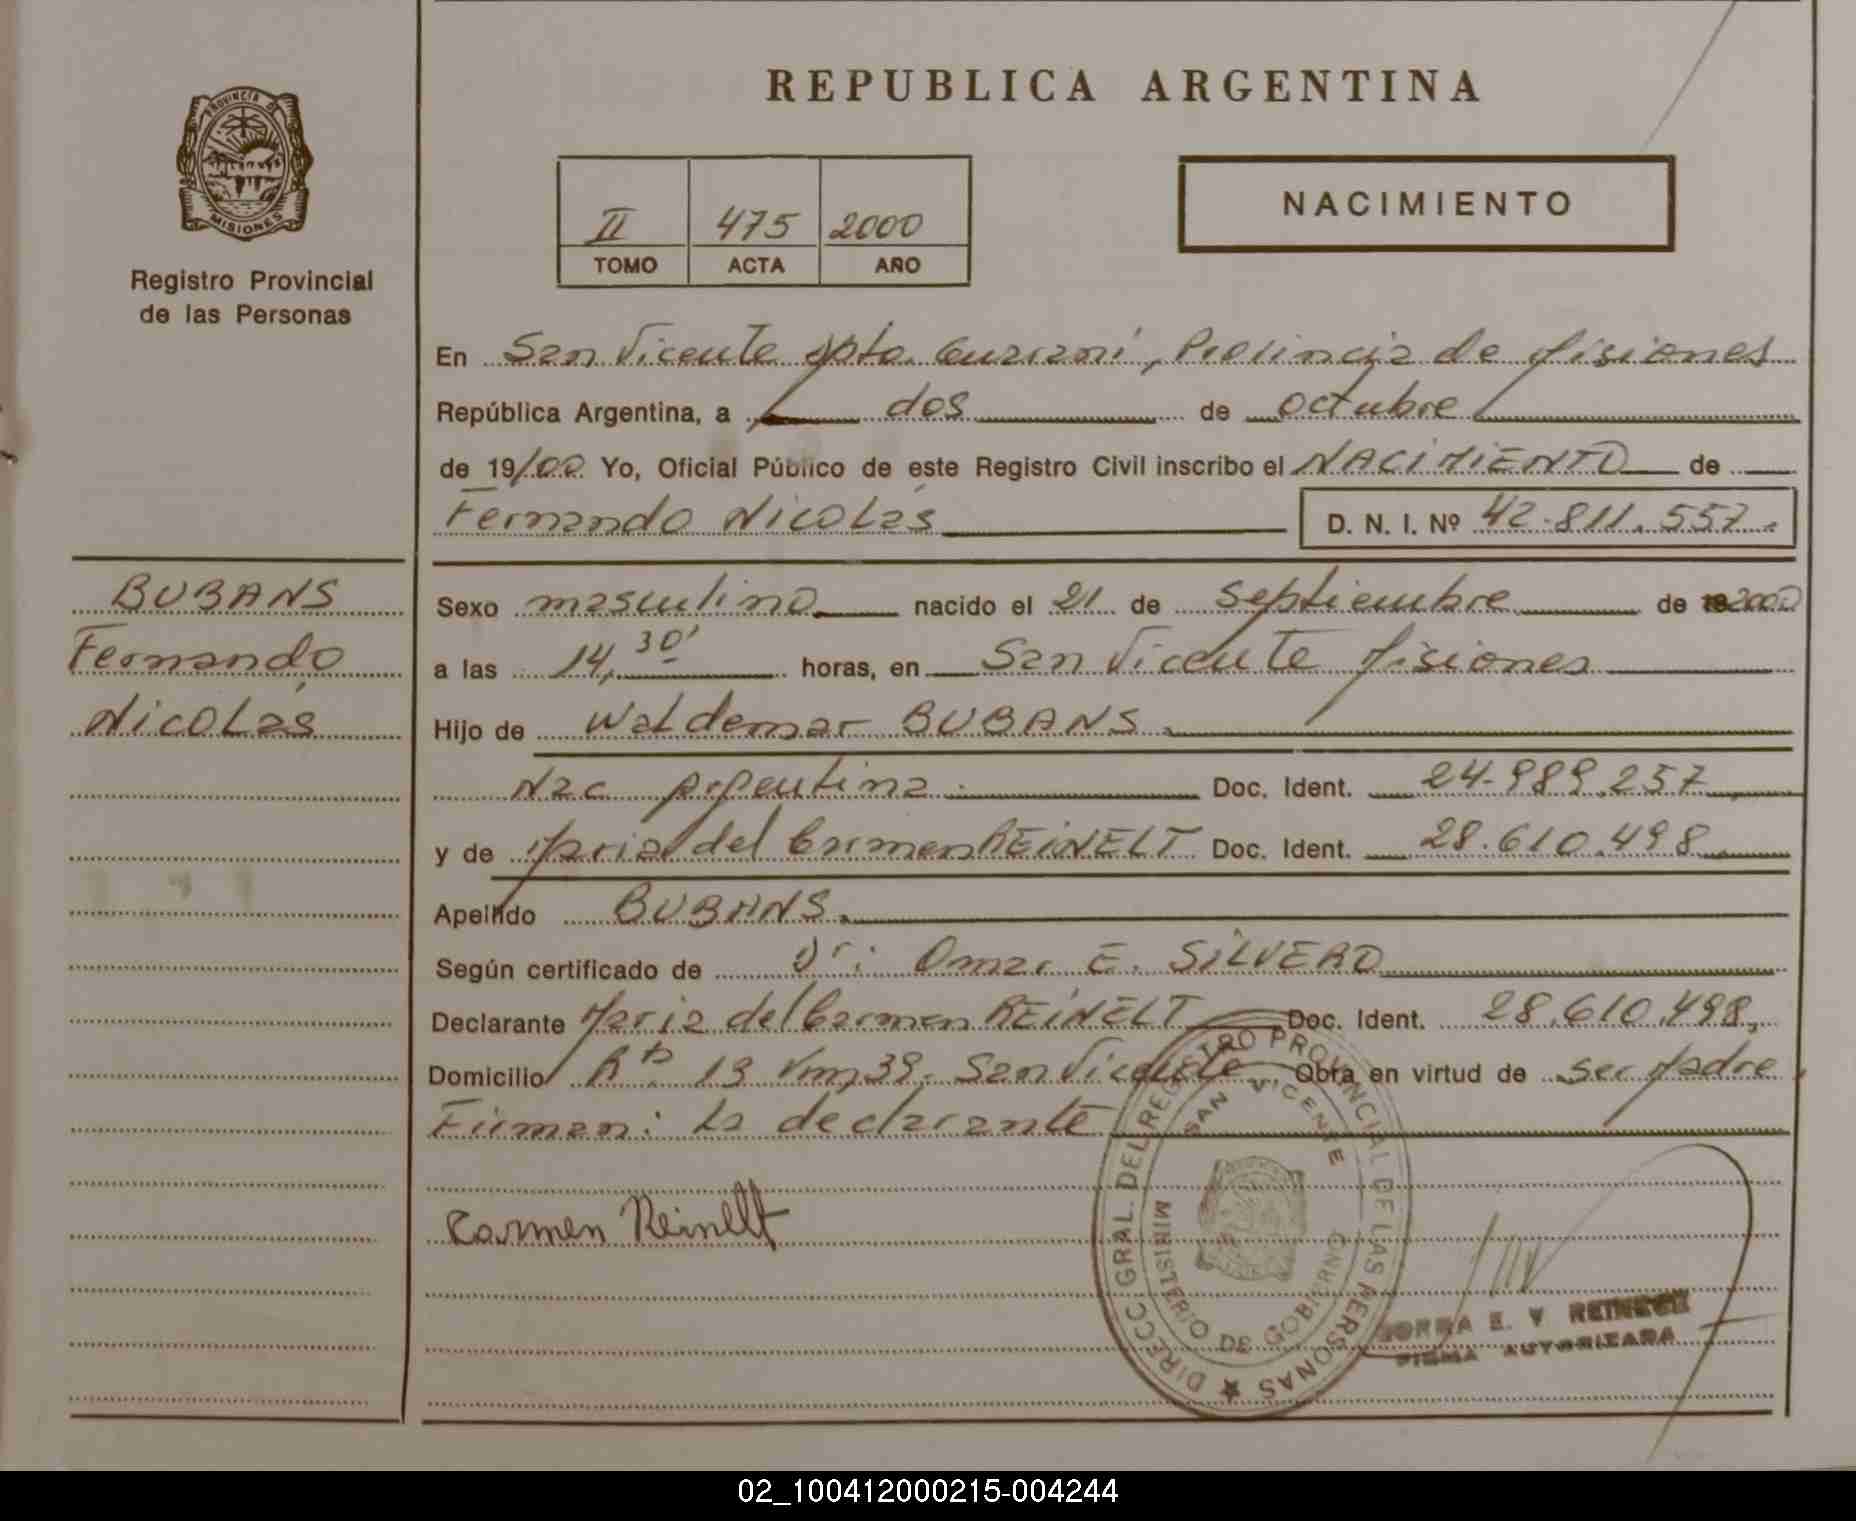 REPUBLICA ARGENTINA
PROVINCIA DE
MISIONES
Registro Provincial
de las Personas
II 475 2000
TOMO ACTA AÑO
NACIMIENTO
En San Vicente Dpto. Guaraní, Provincia de Misiones
República Argentina, a dos de octubre
de 19/00 Yo, Oficial Público de este Registro Civil inscribo el NACIMIENTO de
Fernando Nicolás D. N. I. Nº 42.811.557.
BUBANS
Fernando
Nicolás
Sexo masculino nacido el 21 de septiembre de 2000
a las 14,30' horas, en San Vicente Misiones
Hijo de Waldemar BUBANS
Nac Argentina Doc. Ident. 24.989.257
y de Maria del Carmen REiNELT Doc. Ident. 28.610.498
Apellido BUBANS
Según certificado de Dr: Omar E. SiLVERO
Declarante Maria del Carmen REiNELT Doc. Ident. 28.610.498,
Domicilio Rta. 13 Km 39. San Vicente Obra en virtud de ser Madre
Firman: La declarante
Carmen Reinelt
DIRECC. GRAL. DEL REGISTRO PROVINCIAL DE LAS PERSONAS
SAN VICENTE
MINISTERIO DE GOBIERNO
E. V REINECK
FIRMA AUTORIZADA
02_100412000215-004244